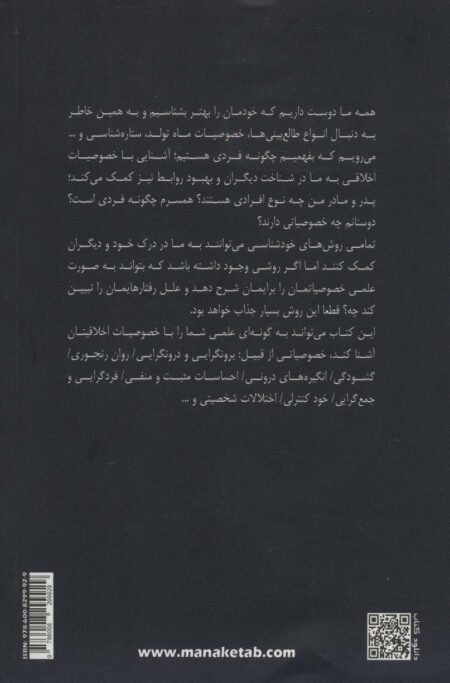 همه ما دوست داریم که خودمان را بهتر بشناسیم و به همین خاطر
به دنبال انواع طالع‌بینی‌ها، خصوصیات ماه تولد، ستاره‌شناسی و ...
می‌رویم که بفهمیم چگونه فردی هستیم؛ آشنایی با خصوصیات
اخلاقی به ما در شناخت دیگران و بهبود روابط نیز کمک می‌کند؛
پدر و مادر من چه نوع افرادی هستند؟ همسرم چگونه فردی است؟
دوستانم چه خصوصیاتی دارند؟
تمامی روش‌های خودشناسی می‌توانند به ما در درک خود و دیگران
کمک کنند اما اگر روشی وجود داشته باشد که بتواند به صورت
علمی خصوصیاتمان را برایمان شرح دهد و علل رفتارهایمان را تبیین
کند چه؟ قطعا این روش بسیار جذاب خواهد بود.
این کتاب می‌تواند به گونه‌ای علمی شما را با خصوصیات اخلاقیتان
آشنا کند، خصوصیاتی از قبیل: برونگرایی و درونگرایی/ روان رنجوری/
گشودگی/ انگیزه‌های درونی/ احساسات مثبت و منفی/ فردگرایی و
جمع‌گرایی/ خود کنترلی/ اختلالات شخصیتی و ...
ISBN: 978-600-8299-92-9
9 786008 299929
www.manaketab.com
دانلود کتاب